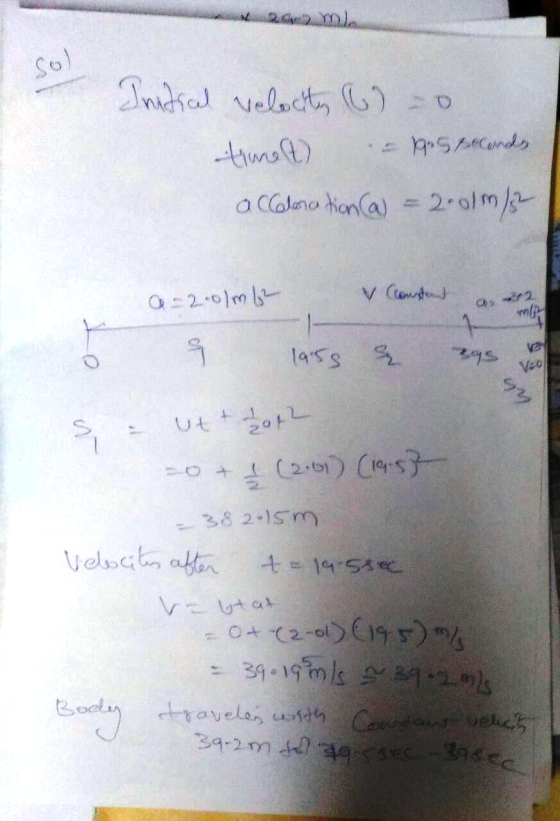 x 39.2 m/s
Sol
Initial velocity (U) = 0
time(t) = 19.5 seconds
acceleration(a) = 2.01 m/s²
a = 2.01 m/s² V Constant a = -3.2 m/s²
0 S1 19.5s S2 39s V=0
S3
S1 = Ut + 1/2 at²
= 0 + 1/2 (2.01) (19.5)²
= 382.15m
Velocity after t = 19.5 sec
V = U + at
= 0 + (2.01) (19.5) m/s
= 39.195 m/s ≅ 39.2 m/s
Body traveles with Constant velocity
39.2m 19.5sec - 39sec